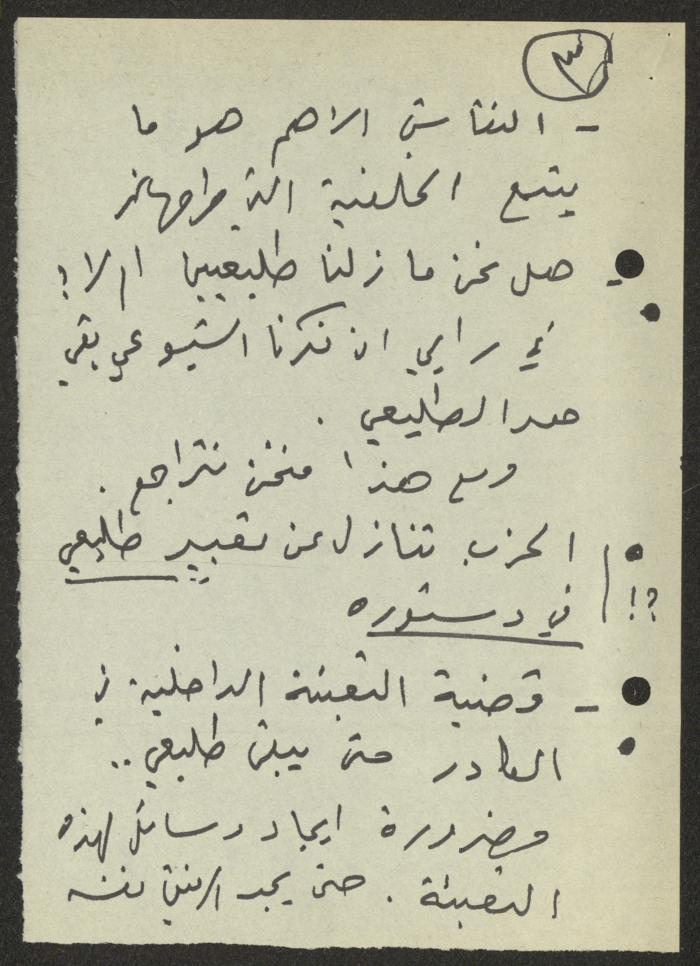 ٣
- النقاش الاهم هو ما
يتبع الخلفية التي
- هل نحن ما زلنا طليعيين ام لا؟
في رايي ان فكرنا الشيوعي بقي
هو الطليعي .
ومع هذا فنحن نتراجع .
الحزب تنازل عن تعبير طليعي
في دستوره ؟!
- قضية التعبئة الداخلية في
الكادر حتى يبقى طليعي ..
وضرورة ايجاد وسائل لهذه
التعبئة . حتى يجد الرفيق نفسه